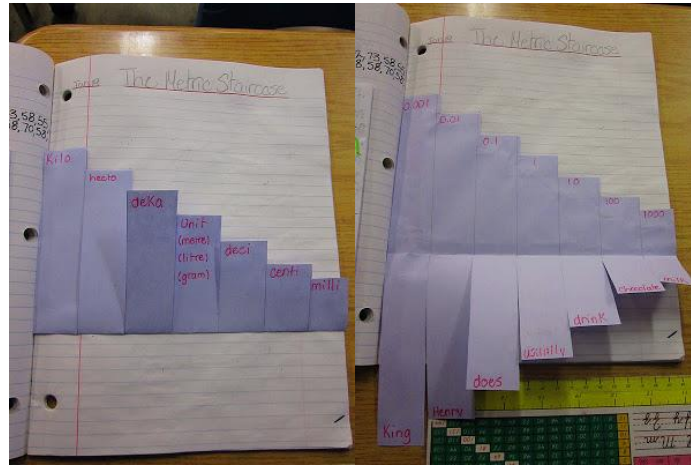 The Metric Staircase
Kilo
hecto
deka
Unit
(metre)
(litre)
(gram)
deci
centi
milli
The Metric Staircase
0.001
0.01
0.1
1
10
100
1000
King
Henry
does
usually
drink
chocolate
milk